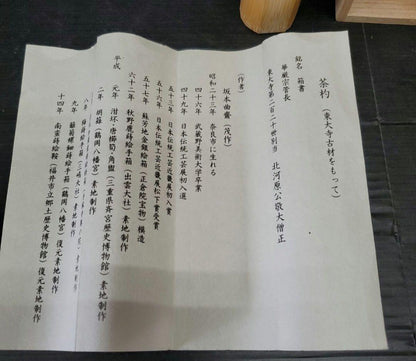 茶杓 (東大寺古材をもって)
銘名 箱書
華厳宗管長
東大寺第二百二十世別当 北河原公敬大僧正
(作者)
坂本曲齋 (茂作)
昭和二十三年 奈良市に生れる
四十六年 武蔵野美術大学卒業
四十九年 日本伝統工芸展初入選
五十三年 日本伝統工芸近畿展初入賞
五十六年 日本伝統工芸近畿展松下賞受賞
五十七年 蘇芳地金銀絵箱(正倉院宝物)模造
六十二年 秋野鹿蒔絵手箱(出雲大社)素地制作
平成 元年 泔坏・唐櫛笥・角盥(三重県斉宮歴史博物館)素地制作
二年 胡籙(鶴岡八幡宮)素地制作
八年
九年 葡萄螺鈿蒔絵手箱(鶴岡八幡宮)復元素地制作
十四年 南蛮蒔絵鞍(福井市立郷土歴史博物館)復元素地制作